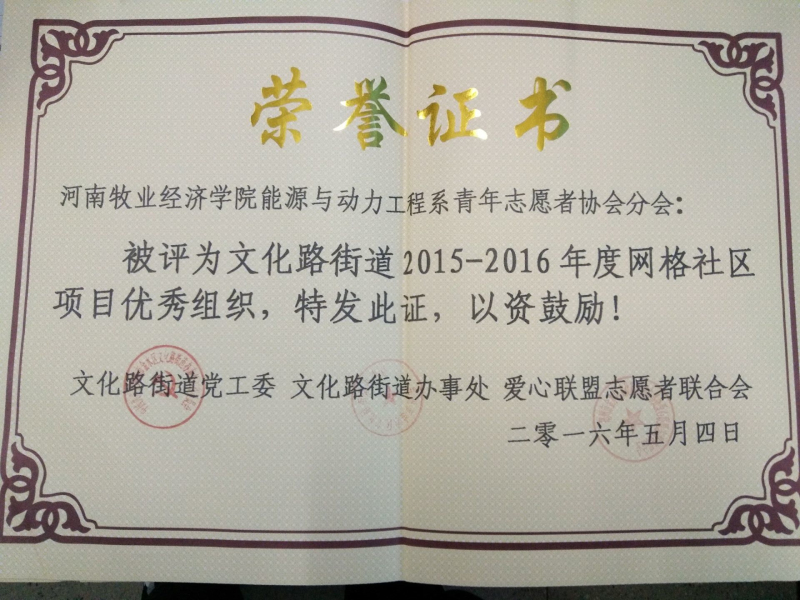 荣誉证书
河南牧业经济学院能源与动力工程系青年志愿者协会分会：
被评为文化路街道2015-2016年度网格社区
项目优秀组织，特发此证，以资鼓励！
文化路街道党工委 文化路街道办事处 爱心联盟志愿者联合会
二零一六年五月四日